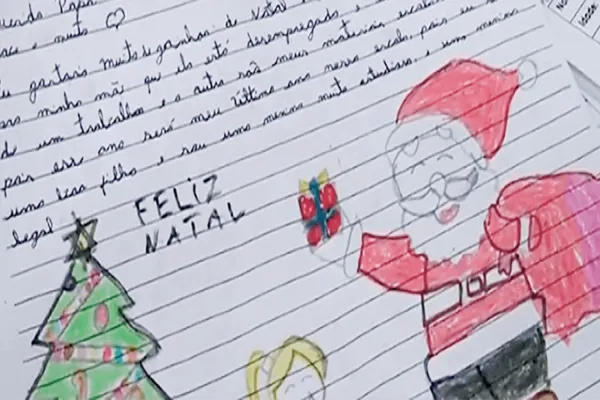 muito
Eu gostaria muito ganhar de Natal
minha mãe que ela está desempregada e
de um trabalho e o outro são meus materiais
por esse ano será meu último ano nessa escola, pois eu
uma boa filha e sou uma menina muito estudiosa, e uma menina
legal
FELIZ
NATAL